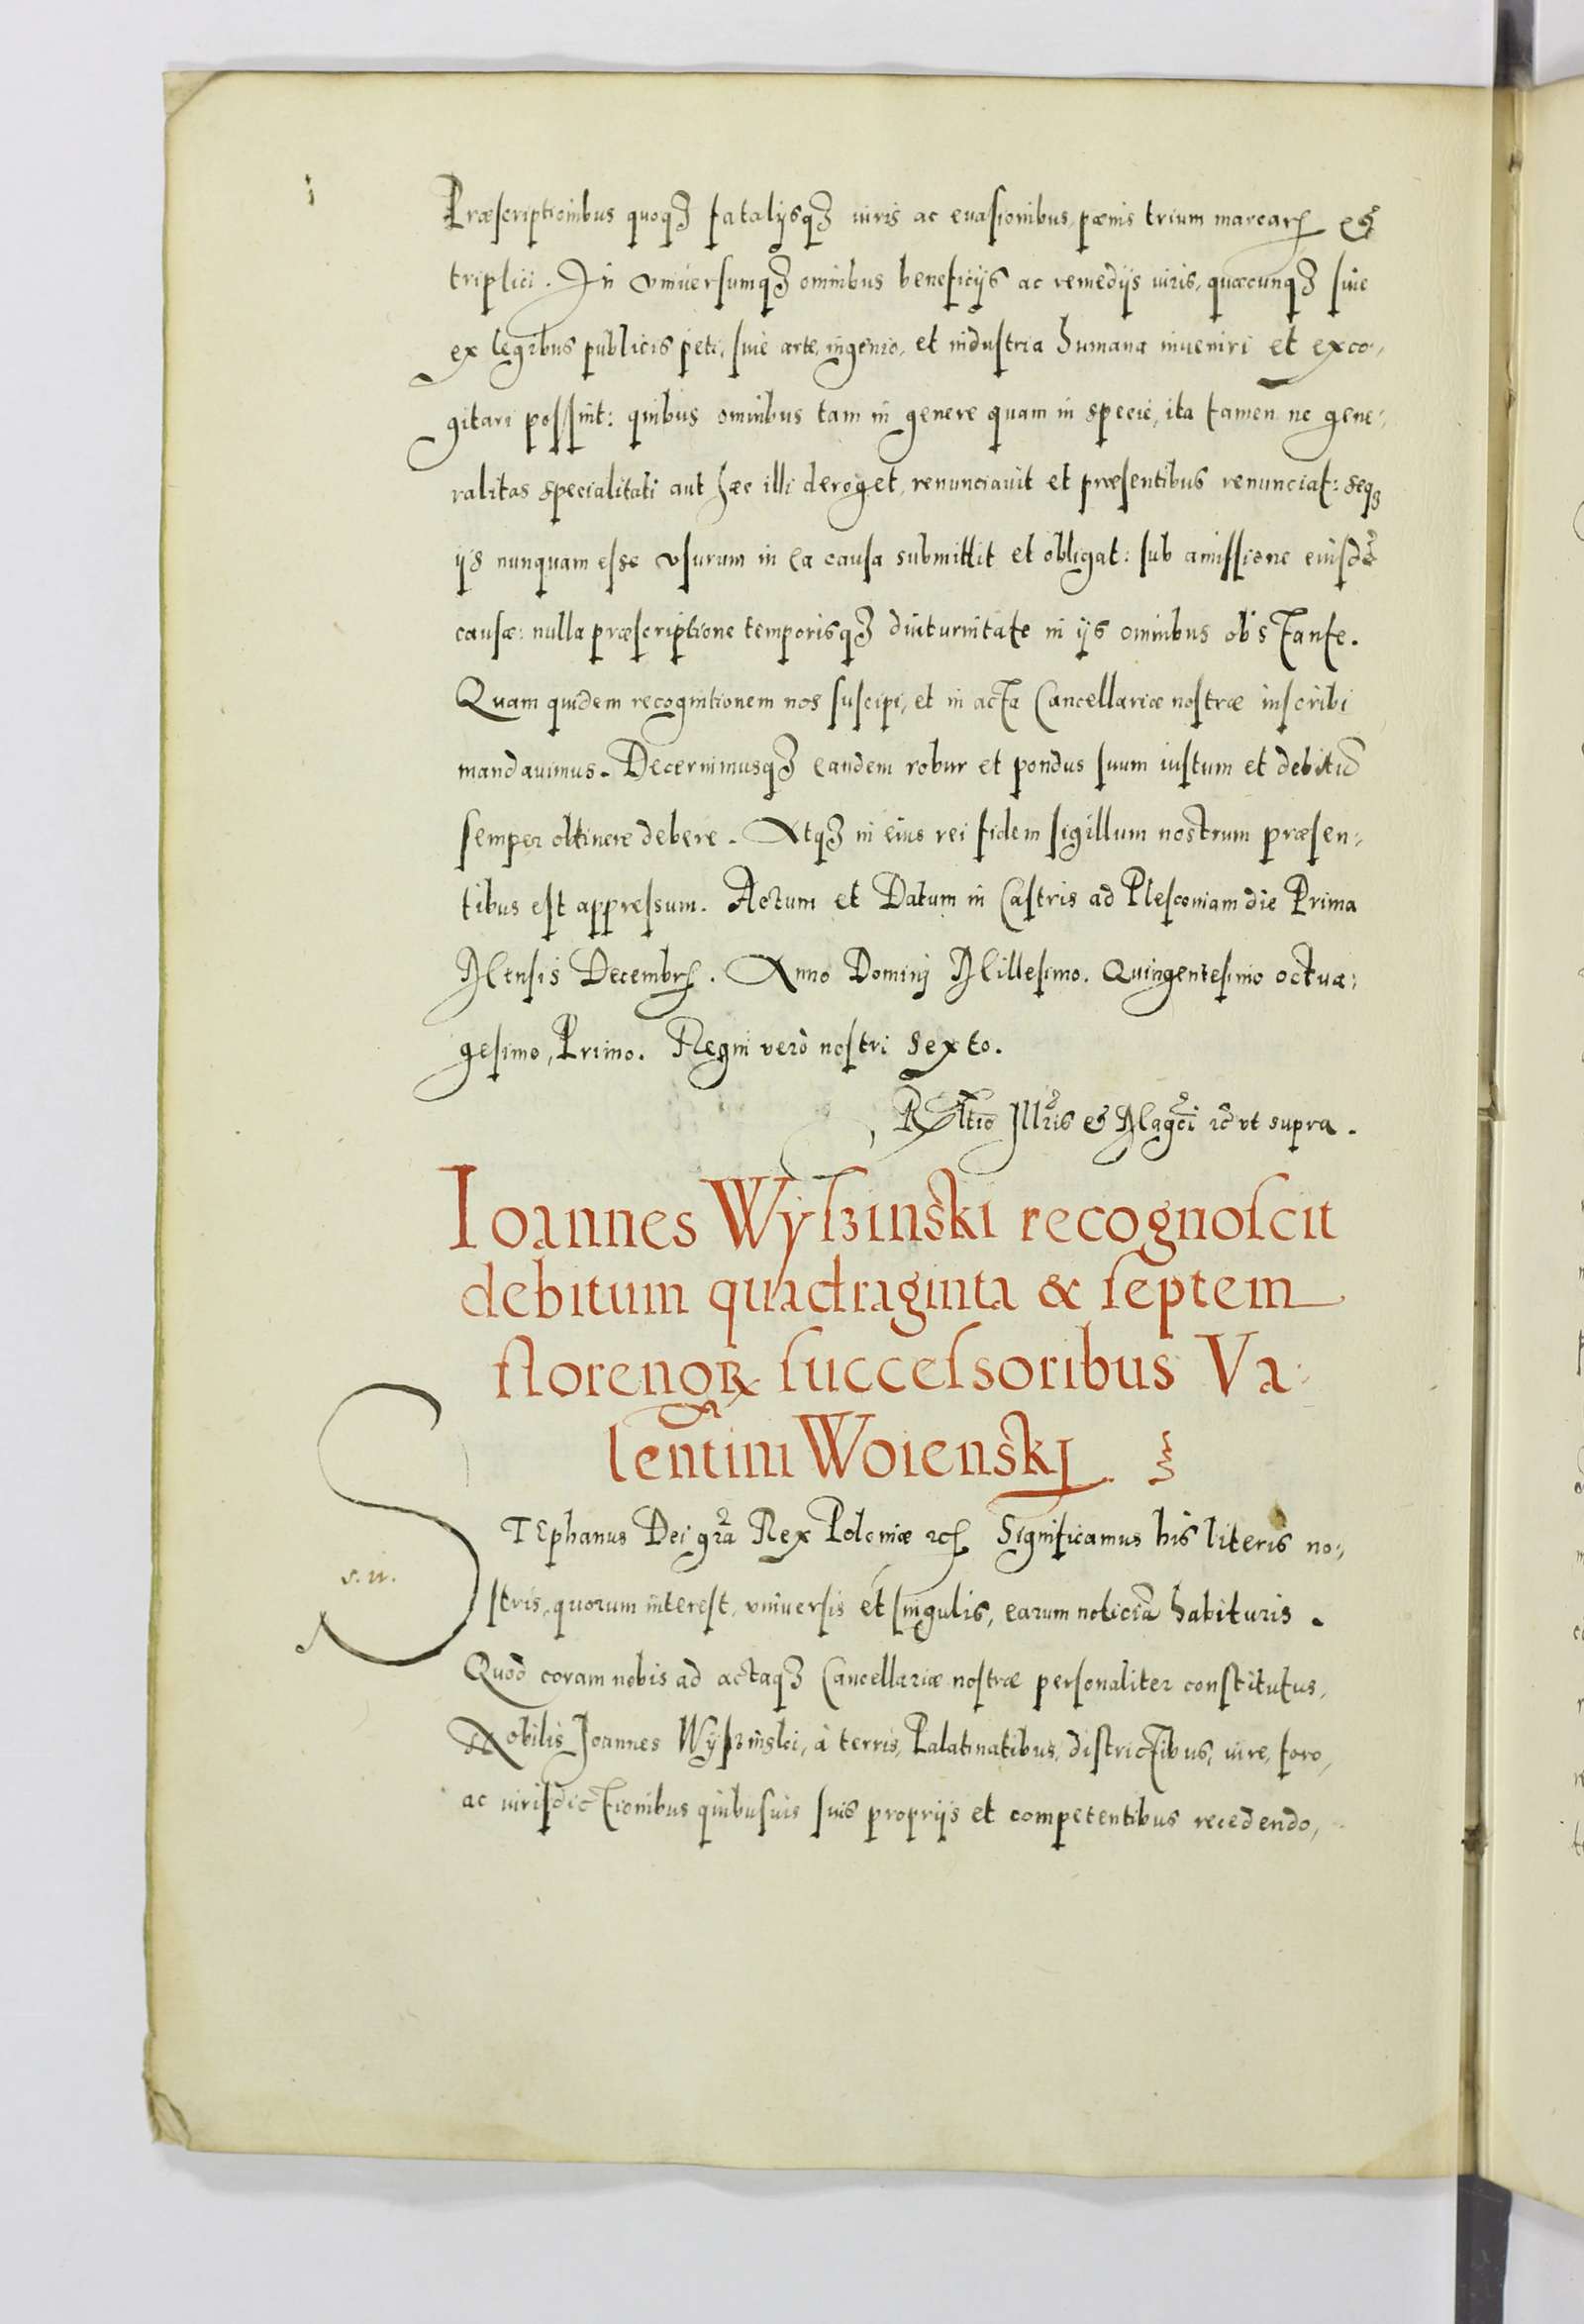 Præscriptionibus quoqꝫ fatalijsqꝫ iuris ac euasionibus, pœnis trium marcarꝝ et
triplici. In vniuersumqꝫ omnibus beneficijs ac remedijs iuris, quæcunqꝫ siue
ex legibus publicis peti, siue arte, ingenio, et industria humana inueniri et exco-
gitari possint: quibus omnibus tam in genere quam in specie, ita tamen ne gene-
ralitas specialitati aut hæc illi deroget, renunciauit et præsentibus renunciat: seqꝫ
ijs nunquam esse vsurum in ea causa submittit et obligat: sub amissione eiusdē
causæ: nulla præscriptione temporisqꝫ diuturnitate in ijs omnibus obstante.
Quam quidem recognitionem nos suscipi, et in acta Cancellariæ nostræ inscribi
mandauimus. Decernimusqꝫ eandem robur et pondus suum iustum et debitū
semper obtinere debere. Atqꝫ in eius rei fidem sigillum nostrum præsen-
tibus est appressum. Actum et Datum in Castris ad Plesconiam die Prima
Mensis Decembrꝭ. Anno Dominj Millesimo. Quingentesimo octua-
gesimo, Primo. Regni verò nostri Sexto.
Rltio Illris & Magci ꝛc̄ vt supra.
Ioannes Wyſzinski recognoſcit
debitum quadraginta & ſeptem
florenoꝝ ſucceſsoribus Va-
lentini Woienskj
s. n.
STEphanus Dei gra Rex Poloniæ ꝛcꝭ Significamus his literis no-
stris, quorum interest, vniuersis et singulis, earum noticiā habituris.
Quod coram nobis ad actaqꝫ Cancellariæ nostræ personaliter constitutus,
Nobilis Joannes Wyſzinski, à terris, Palatinatibus, districtibus, iure, foro,
ac iurisdictionibus quibusuis suis proprijs et competentibus recedendo,